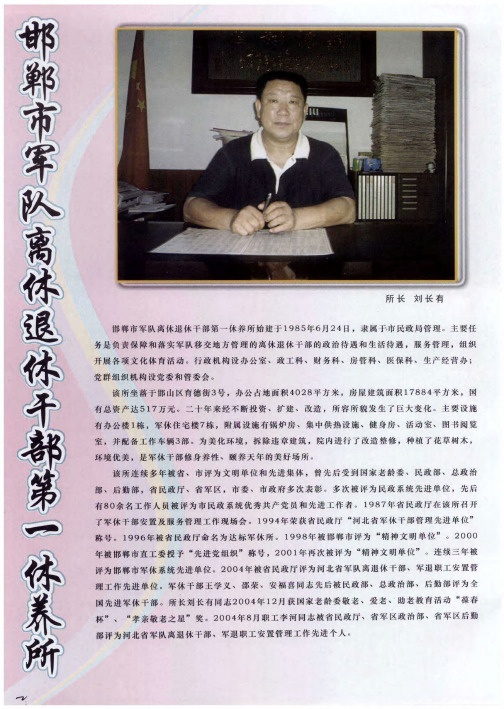 邯郸市军队离休退休干部第一休养所
所长 刘长有
邯郸市军队离休退休干部第一休养所始建于1985年6月24日，隶属于市民政局管理。主要任
务是负责保障和落实军队移交地方管理的离休退休干部的政治待遇和生活待遇，服务管理，组织
开展各项文化体育活动。行政机构设办公室、政工科、财务科、房管科、医保科、生产经营办；
党群组织机构设党委和管委会。
该所坐落于邯山区育德街3号，办公占地面积4028平方米，房屋建筑面积17884平方米，国
有总资产达517万元。二十年来经不断投资、扩建、改造，所容所貌发生了巨大变化。主要设施
有办公楼1栋，军休住宅楼7栋，附属设施有锅炉房、集中供热设施、健身房、活动室、图书阅览
室，并配备工作车辆3部。为美化环境，拆除违章建筑，院内进行了改造整修，种植了花草树木，
环境优美，是军休干部修身养性、颐养天年的美好场所。
该所连续多年被省、市评为文明单位和先进集体，曾先后受到国家老龄委、民政部、总政治
部、后勤部，省民政厅、省军区，市委、市政府多次表彰。多次被评为民政系统先进单位，先后
有80余名工作人员被评为市民政系统优秀共产党员和先进工作者。1987年省民政厅在该所召开
了军休干部安置及服务管理工作现场会。1994年荣获省民政厅“河北省军休干部管理先进单位”
称号。1996年被省民政厅命名为达标军休所。1998年被邯郸市评为“精神文明单位”。2000
年被邯郸市直工委授予“先进党组织”称号，2001年再次被评为“精神文明单位”。连续三年被
评为邯郸市军休系统先进单位。2004年被省民政厅评为河北省军队离休干部、军退职工安置管
理工作先进单位。军休干部王学义、邵荣、安福喜同志先后被民政部、总政治部、后勤部评为全
国先进军休干部。所长刘长有同志2004年12月获国家老龄委敬老、爱老、助老教育活动“葆春
杯”、“孝亲敬老之星”奖。2004年8月职工李河同志被省民政厅、省军区政治部、省军区后勤
部评为河北省军队离休干部、军退职工安置管理工作先进个人。
2